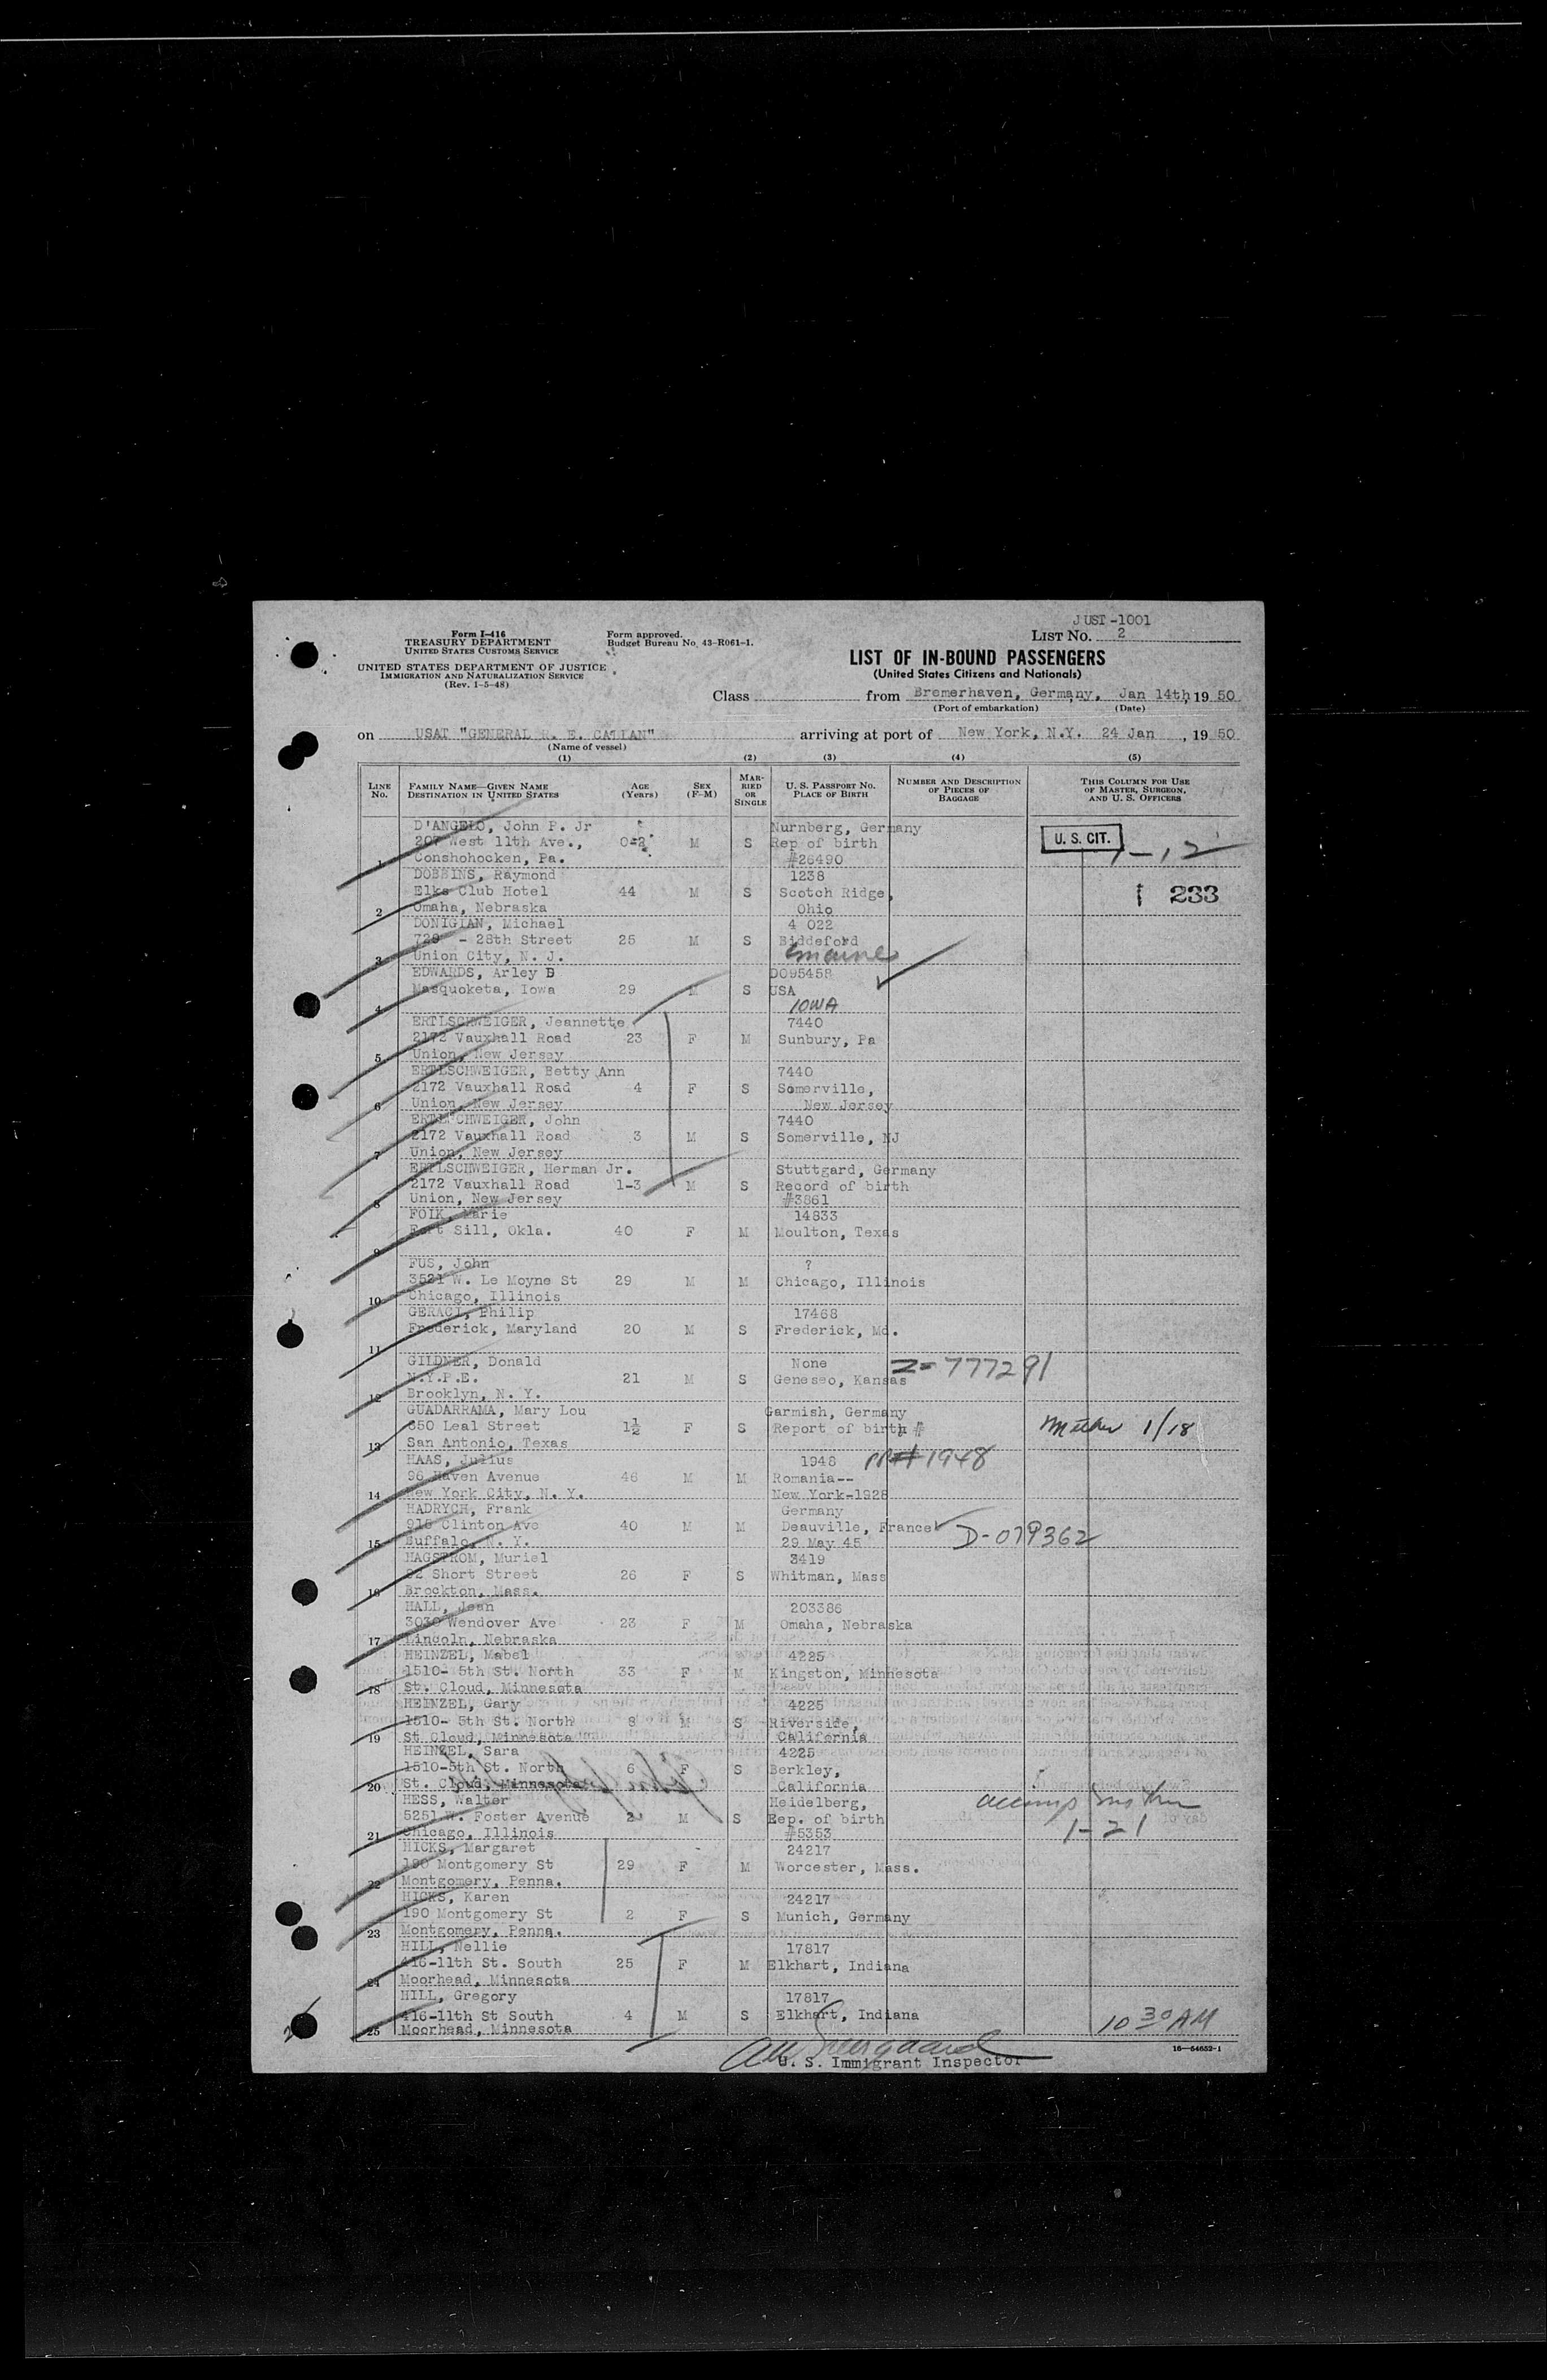 JUST-1001
Form I-416
TREASURY DEPARTMENT
UNITED STATES CUSTOMS SERVICE
Form approved.
Budget Bureau No. 43-R061-1.
LIST NO. 2
UNITED STATES DEPARTMENT OF JUSTICE
IMMIGRATION AND NATURALIZATION SERVICE
(Rev. 1-5-48)
LIST OF IN-BOUND PASSENGERS
(United States Citizens and Nationals)
Class from Bremerhaven, Germany, Jan 14th, 1950
(Port of embarkation) (Date)
on USAT "GENERAL R. E. CALLAN" arriving at port of New York, N.Y. 24 Jan, 1950
(Name of vessel)
(1) (2) (3) (4) (5)
LINE NO. FAMILY NAME—GIVEN NAME DESTINATION IN UNITED STATES AGE (Years) SEX (F-M) MARRIED OR SINGLE U. S. PASSPORT NO. PLACE OF BIRTH NUMBER AND DESCRIPTION OF PIECES OF BAGGAGE THIS COLUMN FOR USE OF MASTER, SURGEON, AND U. S. OFFICERS
D'ANGELO, John P. Jr Nurnberg, Germany
207 West 11th Ave., 0-2 M S Rep of birth U. S. CIT.
1 Conshohocken, Pa. #26490 1-12
DOBBINS, Raymond 1238
Elks Club Hotel 44 M S Scotch Ridge, 233
2 Omaha, Nebraska Ohio
DONIGIAN, Michael 4 022
729 - 28th Street 25 M S Biddeford
3 Union City, N. J. maine
EDWARDS, Arley B D095458
Masquoketa, Iowa 29 M S USA
4 IOWA
ERTLSCHWEIGER, Jeannette 7440
2172 Vauxhall Road 23 F M Sunbury, Pa
5 Union, New Jersey
ERTLSCHWEIGER, Betty Ann 7440
2172 Vauxhall Road 4 F S Somerville,
6 Union, New Jersey New Jersey
ERTLSCHWEIGER, John 7440
2172 Vauxhall Road 3 M S Somerville, NJ
7 Union, New Jersey
ERTLSCHWEIGER, Herman Jr. Stuttgard, Germany
2172 Vauxhall Road 1-3 M S Record of birth
8 Union, New Jersey #3861
FOIK, Marie 14833
Fort Sill, Okla. 40 F M Moulton, Texas
9
FUS, John ?
3521 W. Le Moyne St 29 M M Chicago, Illinois
10 Chicago, Illinois
GERACI, Philip 17468
Frederick, Maryland 20 M S Frederick, Md.
11
GILDNER, Donald None Z-777291
N.Y.P.E. 21 M S Geneseo, Kansas
12 Brooklyn, N. Y.
GUADARRAMA, Mary Lou Garmish, Germany
650 Leal Street 1½ F S Report of birth # Mother 1/18
13 San Antonio, Texas
HAAS, Julius 1948 PP# 1948
96 Haven Avenue 46 M M Romania--
14 New York City, N. Y. New York-1928
HADRYCH, Frank Germany
915 Clinton Ave 40 M M Deauville, France D-079362
15 Buffalo, N. Y. 29 May 45
HAGSTROM, Muriel 3419
92 Short Street 26 F S Whitman, Mass
16 Brockton, Mass.
HALL, Jean 203386
3030 Wendover Ave 23 F M Omaha, Nebraska
17 Lincoln, Nebraska
HEINZEL, Mabel 4225
1510- 5th St. North 33 F M Kingston, Minnesota
18 St. Cloud, Minnesota
HEINZEL, Gary 4225
1510- 5th St. North 8 M S Riverside,
19 St Cloud, Minnesota California
HEINZEL, Sara 4225
1510-5th St. North 6 F S Berkley,
20 St. Cloud, Minnesota California
HESS, Walter Heidelberg,
5251 W. Foster Avenue 2 M S Rep. of birth
21 Chicago, Illinois #5353 1-21
HICKS, Margaret 24217
190 Montgomery St 29 F M Worcester, Mass.
22 Montgomery, Penna.
HICKS, Karen 24217
190 Montgomery St 2 F S Munich, Germany
23 Montgomery, Penna.
HILL, Nellie 17817
416-11th St. South 25 F M Elkhart, Indiana
24 Moorhead, Minnesota
HILL, Gregory 17817
416-11th St South 4 M S Elkhart, Indiana 10 30 AM
25 Moorhead, Minnesota
16—54652-1
U. S. Immigrant Inspector